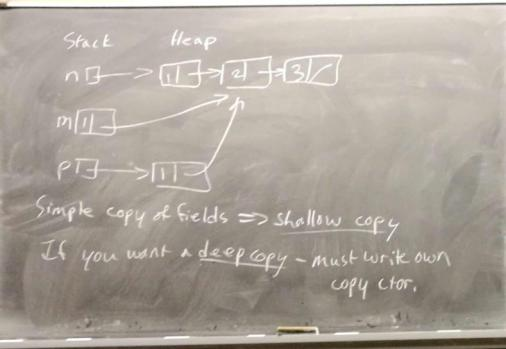 Stack Heap
n 1 2 3
m 1
p 1
Simple copy of fields => shallow copy
If you want a deep copy - must write own
copy ctor.